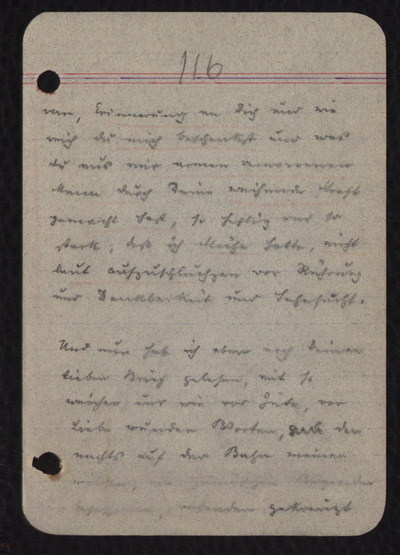 116
vom, Erinnerung an Dich und wie
mich du mich beschenkst und was
du aus mir armen verworrenen
Mann durch Deine weisende Kraft
gemacht hast, so heftig und so
stark, daß ich Mühe hatte, nicht
laut aufzuschluchzen vor Rührung
und Dankbarkeit und Sehnsucht.
Und nun hab ich eben noch Deinen
lieben Brief gelesen, mit so
weichen und wie vor Güte, vor
Liebe runden Worten, der
nachts auf der Bahn meinen
gekreuzt